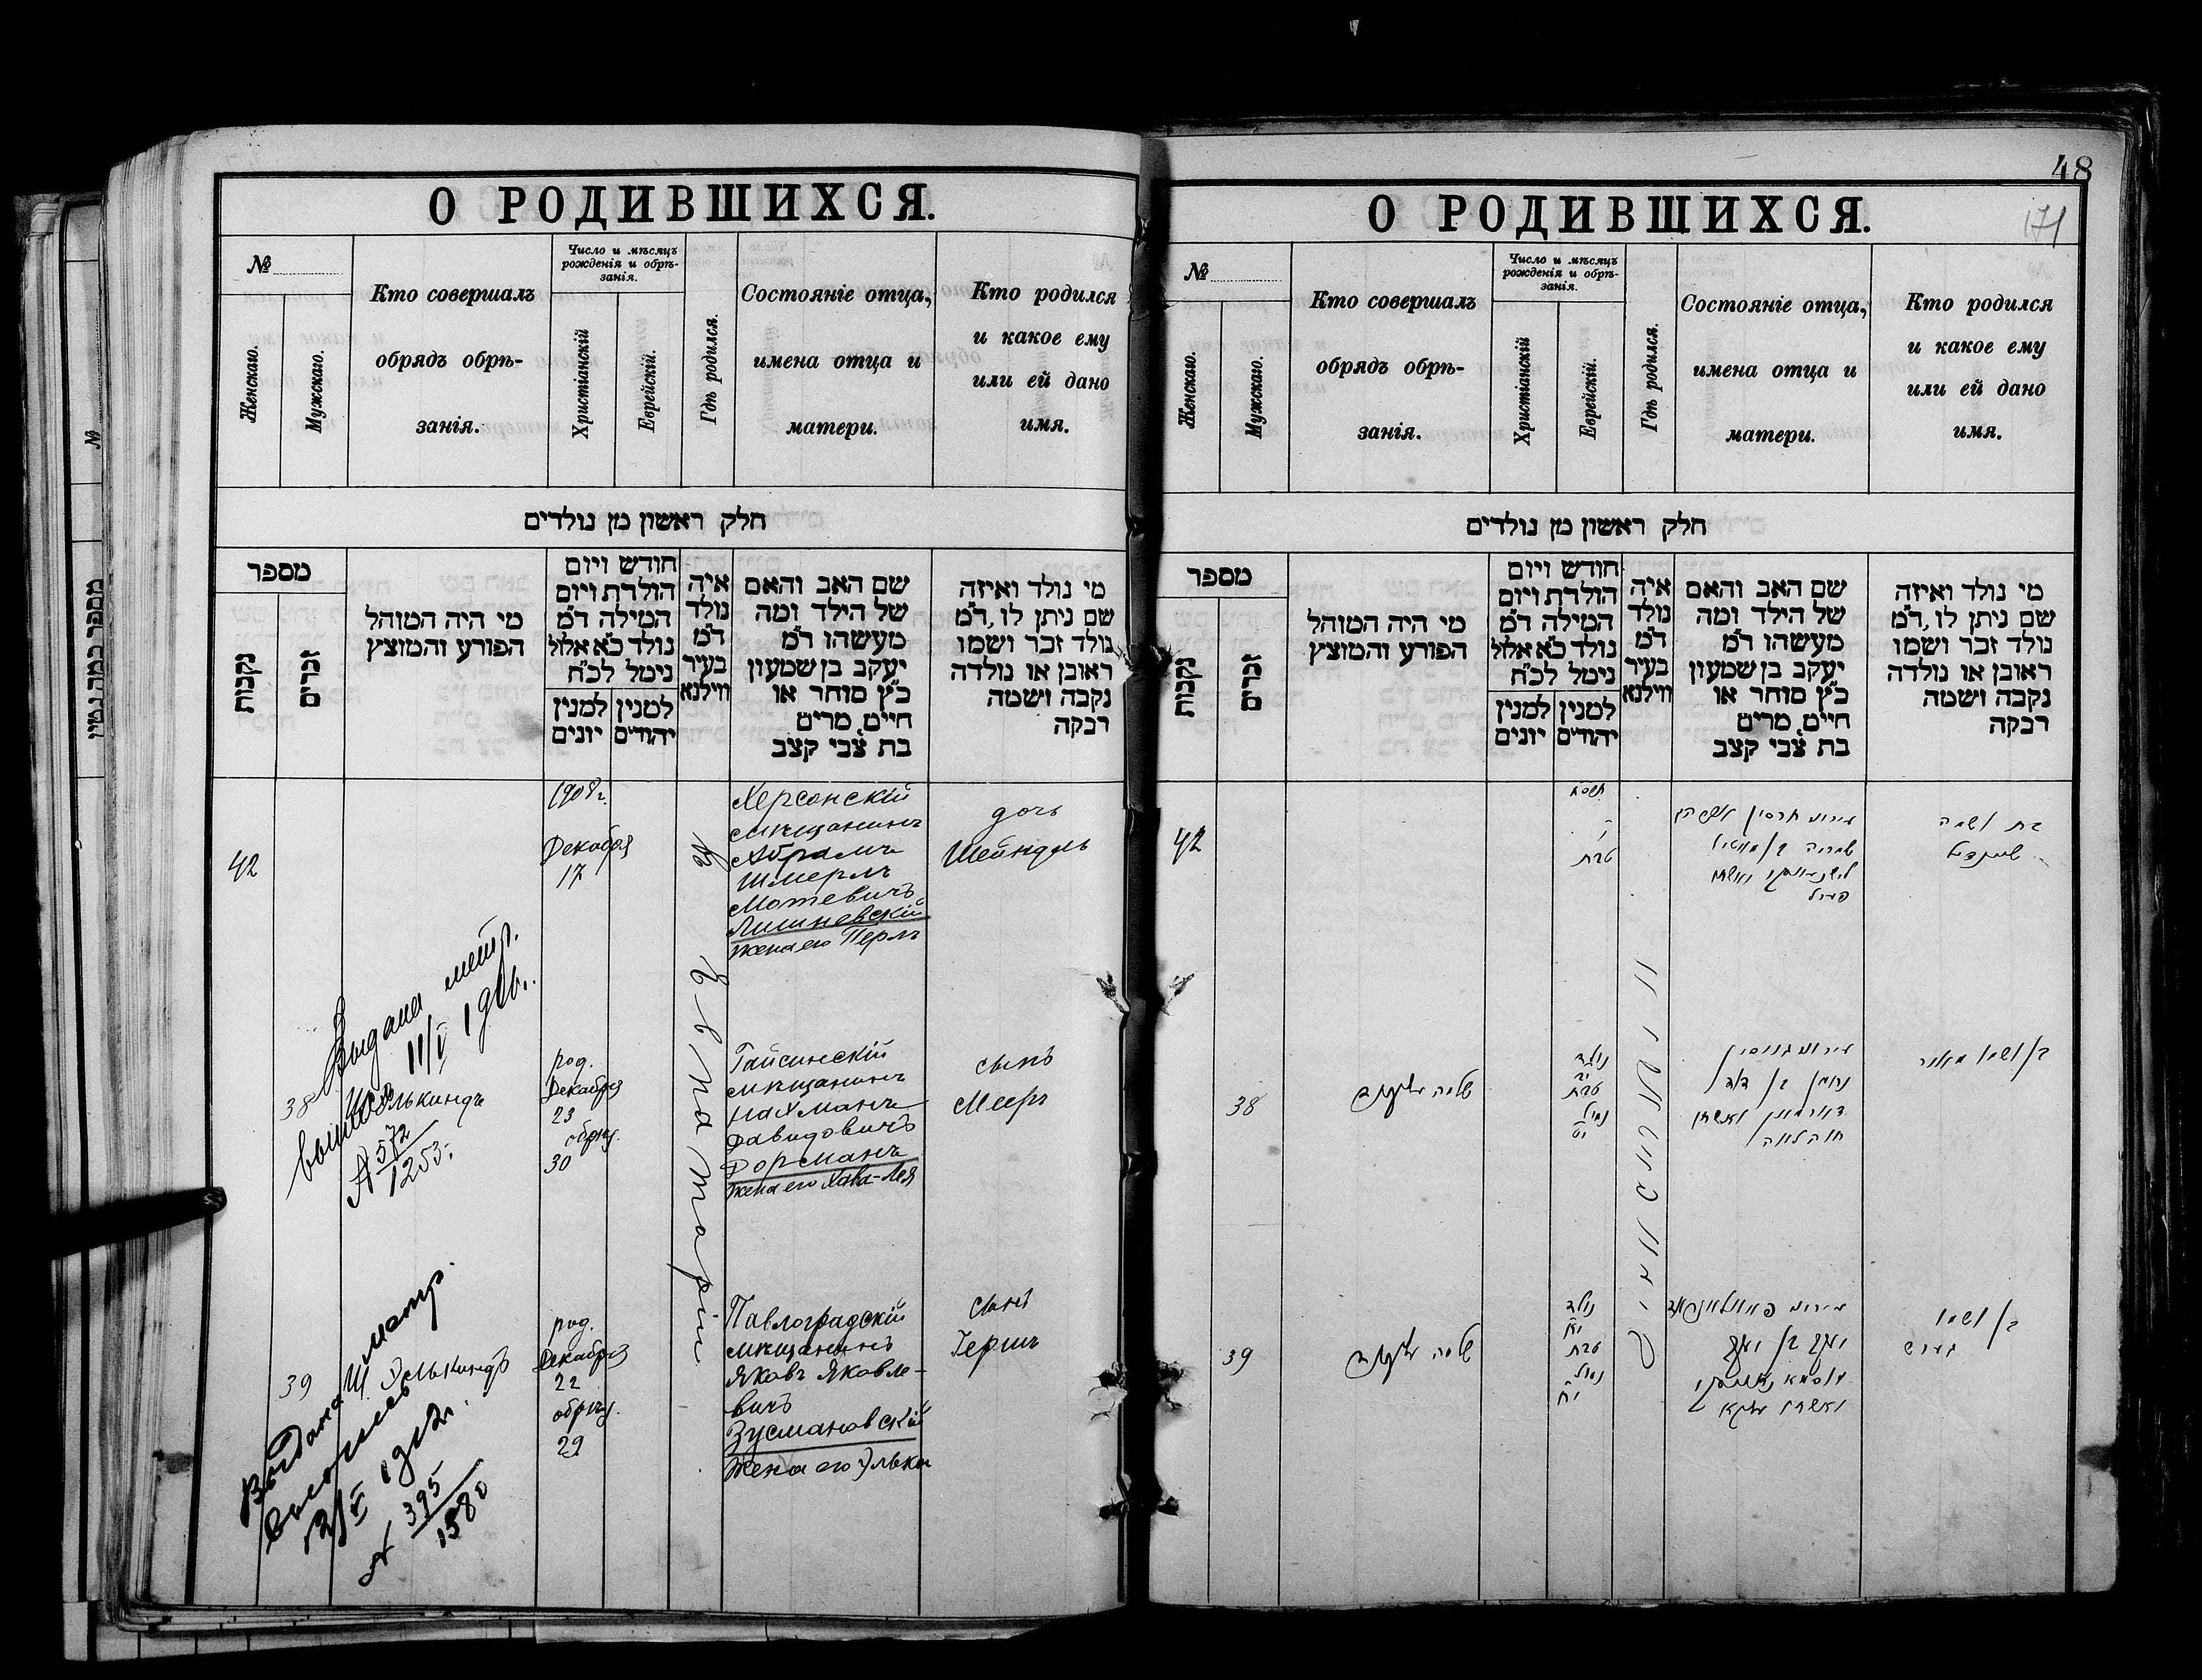 О РОДИВШИХСЯ.
№
Женскаго.
Мужскаго.
Кто совершалъ
обрядъ обрѣ-
занія.
Число и мѣсяцъ
рожденія и обрѣ-
занія.
Христіанскій
Еврейскій.
Гдѣ родился.
Состояніе отца,
имена отца и
матери.
Кто родился
и какое ему
или ей дано
имя.
חלק ראשון מן נולדים
מספר
נקבות
זכרים
מי היה המוהל
הפורע והמוצץ
חודש ויום
הולדת ויום
המילה ד״מ
נולד כ״א אלול
נימל לכ״ח
למנין
יונים
למנין
יהודים
איה
נולד
ד״מ
בעיר
ווילנא
שם האב והאם
של הילד ומה
מעשהו ד״מ
יעקב בן שמעון
כ״ץ סוחר או
חייט, מרים
בת צבי קצב
מי נולד ואיזה
שם ניתן לו, ד״מ
נולד זכר ושמו
ראובן או נולדה
נקבה ושמה
רבקה
42
1908 г.
Декабря
17
Въ Евпаторіи
Херсонскій
мѣщанинъ
Абрамъ
Шмерлъ
Мотевичъ
Лишневскій
жена его Перлъ
дочь
Шейндль
Выдана метр.
выпись
11/V
№ 572
1253
38
Элькиндъ
род.
Декабря
23
обрѣз.
30
Гайсинскій
мѣщанинъ
Нахманъ
Давидовичъ
Дорманъ
жена его Хава-Лея
сынъ
Мееръ
Выдана метр.
выпись
395
1580
39
Ш. Элькиндъ
род.
Декабря
22
обрѣз.
29
Павлоградскій
мѣщанинъ
Яковъ Яковле-
вичъ
Зусмановскій
жена его Элька
сынъ
Гершъ
48
171
О РОДИВШИХСЯ.
№
Женскаго.
Мужскаго.
Кто совершалъ
обрядъ обрѣ-
занія.
Число и мѣсяцъ
рожденія и обрѣ-
занія.
Христіанскій
Еврейскій.
Гдѣ родился.
Состояніе отца,
имена отца и
матери.
Кто родился
и какое ему
или ей дано
имя.
חלק ראשון מן נולדים
מספר
נקבות
זכרים
מי היה המוהל
הפורע והמוצץ
חודש ויום
הולדת ויום
המילה ד״מ
נולד כ״א אלול
נימל לכ״ח
למנין
יונים
למנין
יהודים
איה
נולד
ד״מ
בעיר
ווילנא
שם האב והאם
של הילד ומה
מעשהו ד״מ
יעקב בן שמעון
כ״ץ סוחר או
חייט, מרים
בת צבי קצב
מי נולד ואיזה
שם ניתן לו, ד״מ
נולד זכר ושמו
ראובן או נולדה
נקבה ושמה
רבקה
42
טבת
בת ושמה
שיינדיל
38
נולד
טבת
נימול
נחמן בן דוד
דורמאן ואשתו
חוה לאה
בן ושמו מאיר
39
נולד
טבת
נימול
יעקב בן יעקב
בן ושמו
הערש